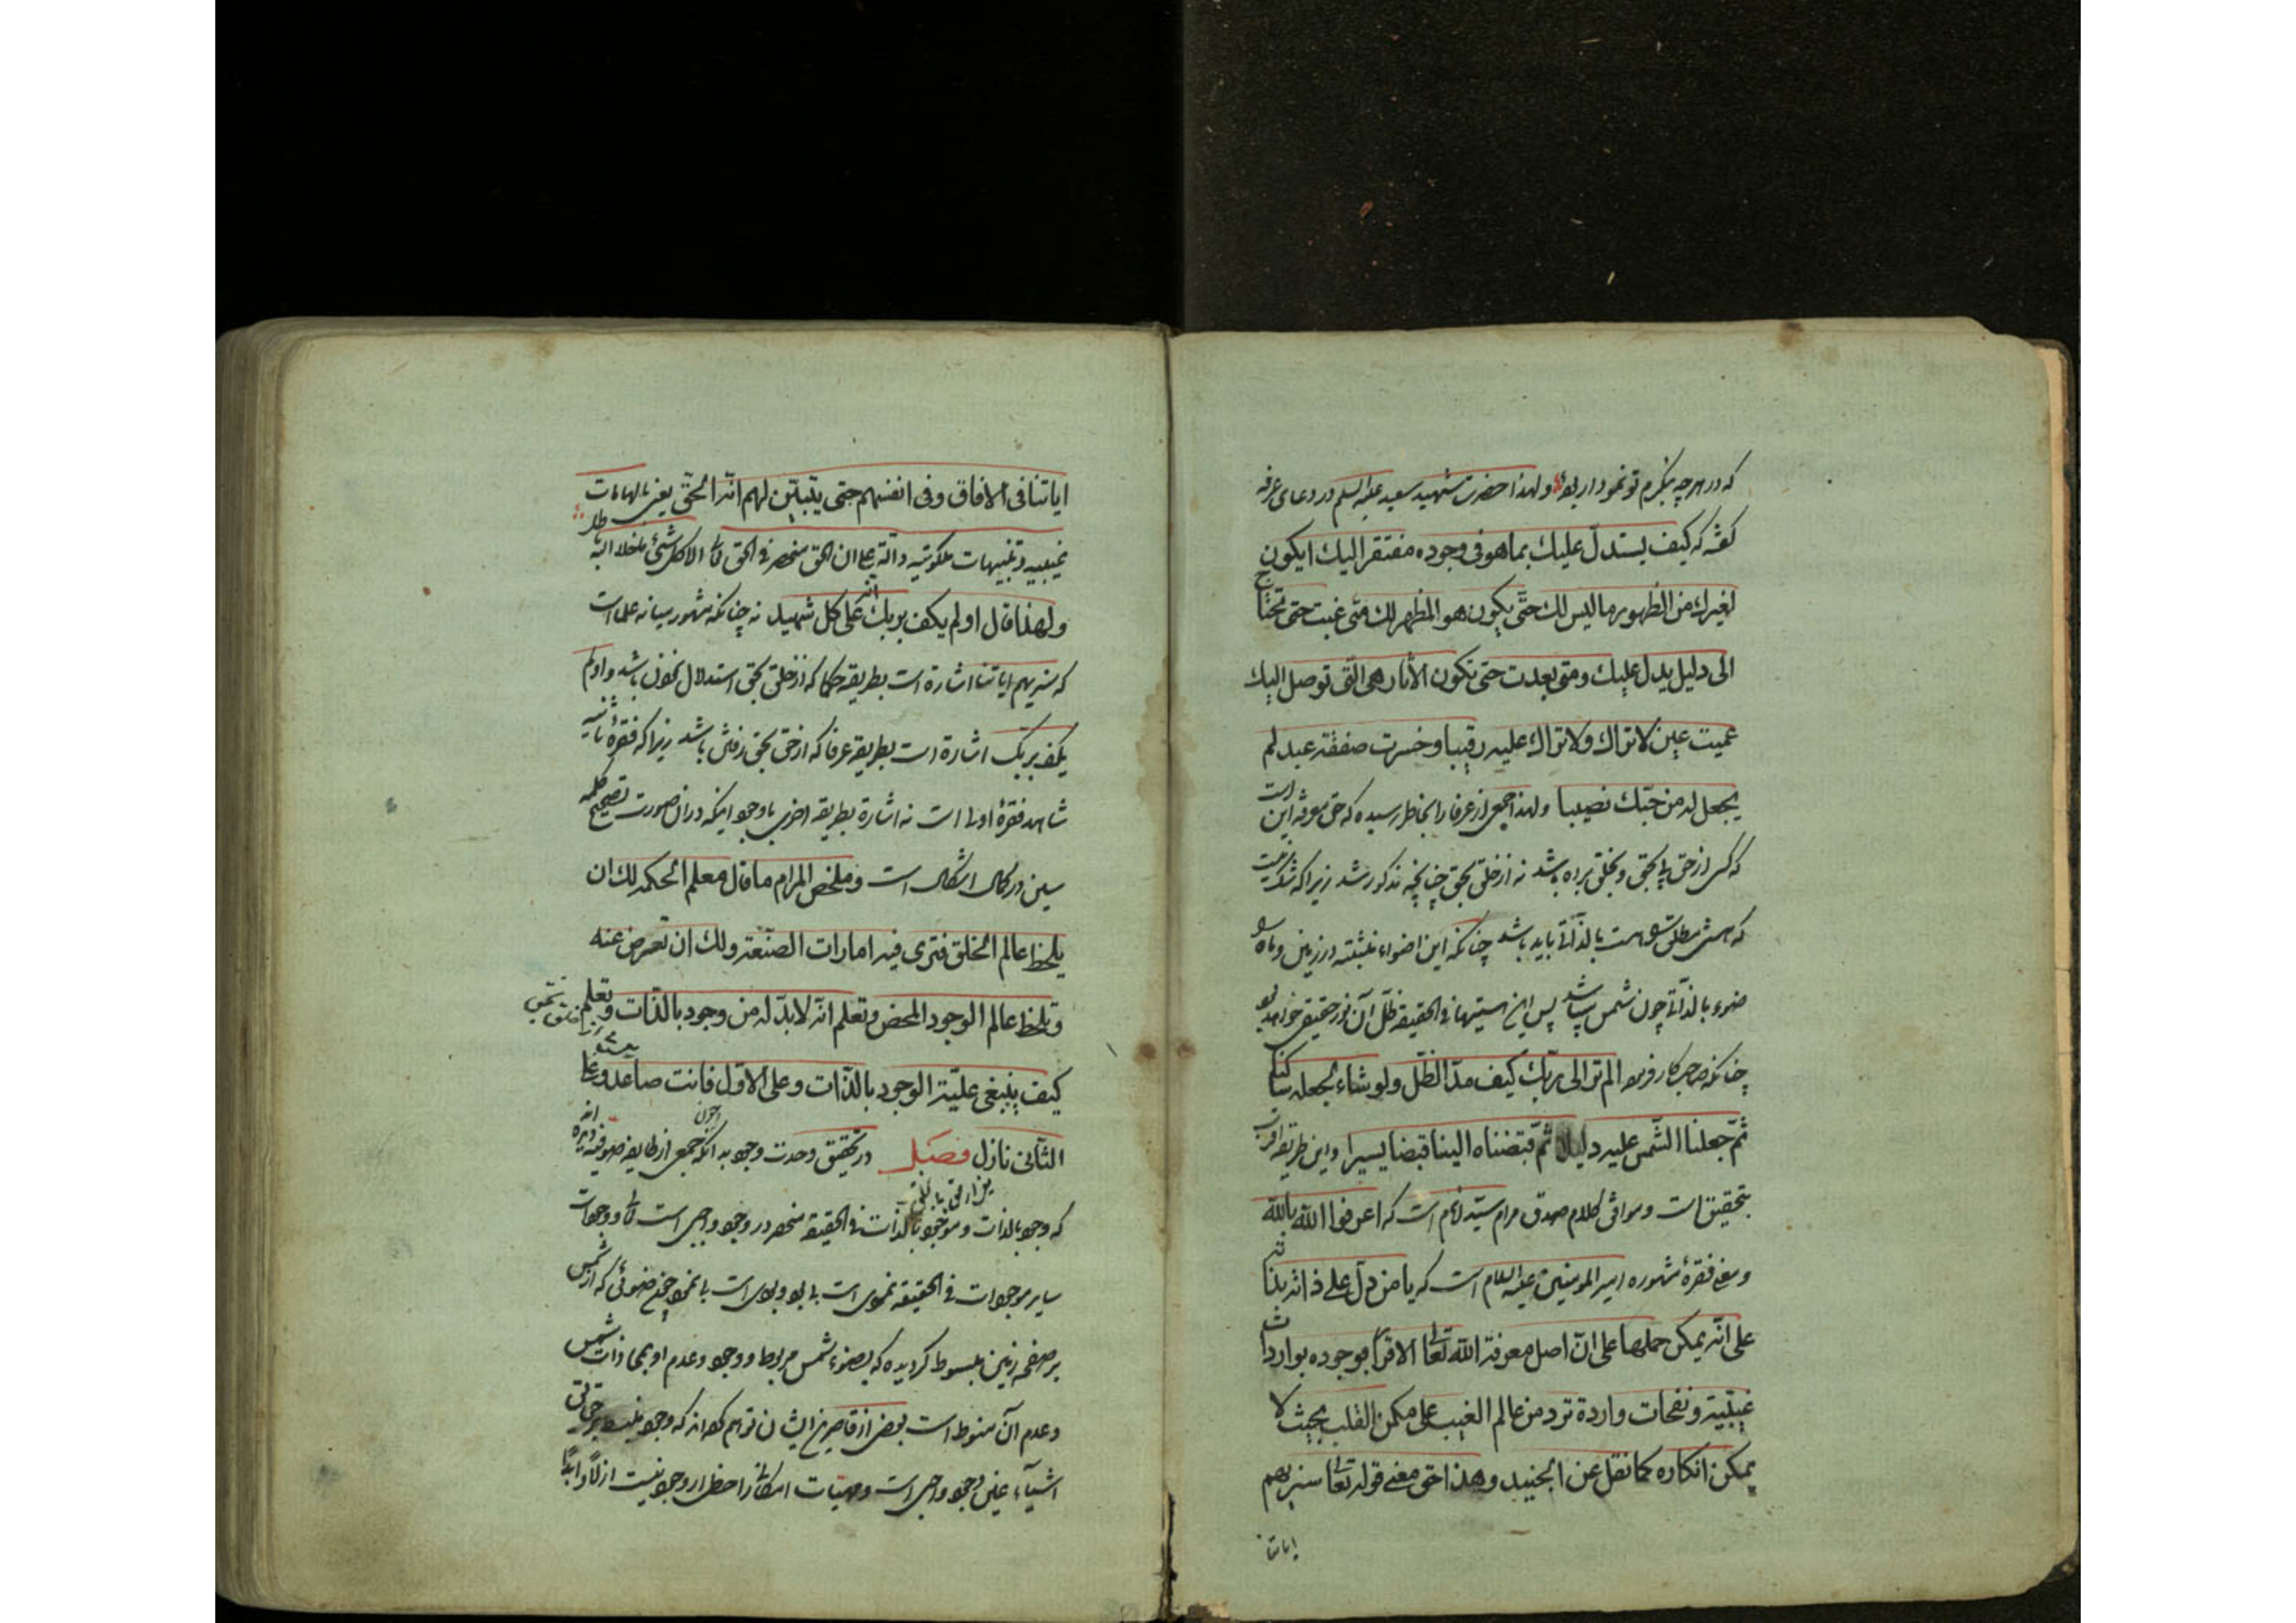 که در هر چه بنگرم تو نمودار بوده و لهذا حضرت شهید سعید علیه السلم در دعای عرفه
گفته که کیف یستدل علیک بما هو فی وجوده مفتقر الیک ایکون
لغیرک من الظهور ما لیس لک حتی یکون هو المظهر لک متی غبت حتی تحتاج
الی دلیل یدل علیک و متی بعدت حتی تکون الآثار هی التی توصل الیک
عمیت عین لا تراک و لا تزال علیه رقیبا و خسرت صفقة عبد لم
یجعل له من حبک نصیبا و لهذا جمعی از عرفا را بخاطر رسیده که حق معرفة این است
که کس از حق پی بحق و بخلق برده باشد نه از خلق بحق چنانچه مذکور شد زیرا که شک نیست
که هستی مطلق هست بالذاتی باید باشد چنانکه این اضواء منبثته در زمین و ماه
ضوء بالذاتی چون شمس باشد پس این هستیها فی الحقیقه ظل آن نور حقیقی خواهد بود
چنانکه فرموده الم تر الی ربک کیف مد الظل و لو شاء لجعله ساکنا
ثم جعلنا الشمس علیه دلیلا ثم قبضناه الینا قبضا یسیرا و این طریقه اقرب
بتحقیق است و موافق کلام صدق مرام سید انام است که اعرفوا الله بالله
و معنی فقرهٔ مشهوره امیر المومنین علیه السلام است که یا من دل علی ذاته بذاته
علی انه یمکن حملها علی ان اصل معرفة الله تعالی الاقرار بوجوده بواردات
غیبیة و نفحات واردة ترد من عالم الغیب علی مکمن القلب بحیث لا
یمکن انکاره کما نقل عن الجنید و هذا احق معنی قوله تعالی سنریهم
ایاتنا
ایاتنا فی الافاق و فی انفسهم حتی یتبین لهم انه الحق یعنی بالهامات
غیبیه و تنبیهات ملکوتیه دالة علی ان الحق منحصر فی الحق تعالی الا کل شیٔ ما خلا الله باطل
و لهذا قال او لم یکف بربک انه علی کل شهید نه چنانکه مشهور میانه علما است
که سنریهم ایاتنا اشارة است بطریقه حکما که از خلق بحق استدلال نمودن باشد و او لم
یکف بربک اشارة است بطریقه عرفا که از حق بحق رفتن باشد زیرا که فقرهٔ ثانیه
شاهد فقرهٔ اولی است نه اشارة بطریقه اخری با وجود اینکه در ان صورت تصحیح کلمه
سین در کمال اشکال است و ملخص المرام ما قال معلم الحکمه لک ان
یلحظ عالم الخلق فتری فیه امارات الصنعة و لک ان تعرض عنه
و تلحظ عالم الوجود المحض و تعلم انه لا بد له من وجود بالذات و تعلم
کیف ینبغی علیة الوجود بالذات و علی الاول فانت صاعد و علی
الثانی نازل فصل در تحقیق وحدت وجود بدانکه جمعی از طایفه صوفیه
که وجود بالذات و موجود بالذات فی الحقیقه منحصر در وجود واجبی است تعالی و وجودات
سایر موجودات فی الحقیقه نمودی است بی بود و بودی است بی نمود چون ضوئی که از شمس
بر صفحه زمین مبسوط گردیده که بضوء شمس مربوط و وجود و عدم او بمحاذات شمس
و عدم آن منوط است بعضی از قاصرین ایشان توهم کرده اند که وجود منبسط بر حقایق
اشیاء عین وجود واجبی است و مهیات امکانی را حظی از وجود نیست ازلا و ابدا